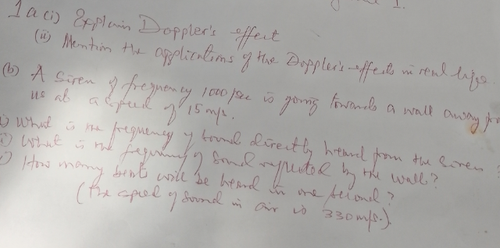 1a(i) Explain Doppler's effect
(ii) Mention the applications of the Doppler's effects in real life
(b) A siren of frequency 1000/sec is going towards a wall away from
us at a speed of 15m/s.
i) What is the frequency of sound directly heard from the siren
i) What is the frequency of sound reflected by the wall?
How many beats will be heard in one second?
(The speed of sound in air is 330m/s.)